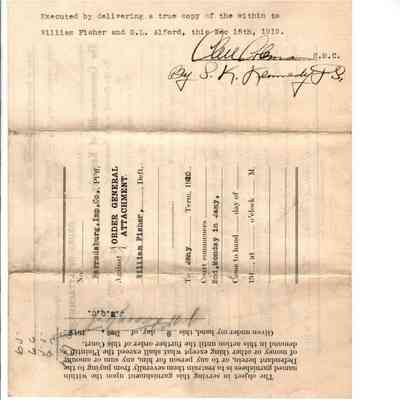 Executed by delivering a true copy of the within to
William Fisher and S.L. Alford, this Dec 15th, 1919.
S.M.C.
By S. K. Kennedy D S,
No.
Harrodsburg,Imp.Co., Pl'ff.
Against
ORDER GENERAL
ATTACHMENT.
William Fisher, Deft.
To Jany Term, 1920.
Court commences
2nd,Monday in Jany,
Come to hand day of
19 at o'clock M.
The object in serving this garnishment upon the within
named garnishees is to restrain them severally from paying to the
Defendant herein, or to any person for him, any sum or amount
of money or other thing except what shall exceed the Plaintiff's
demand in this action until the further order of this Court.
Given under my hand, this 9 day of Dec 191